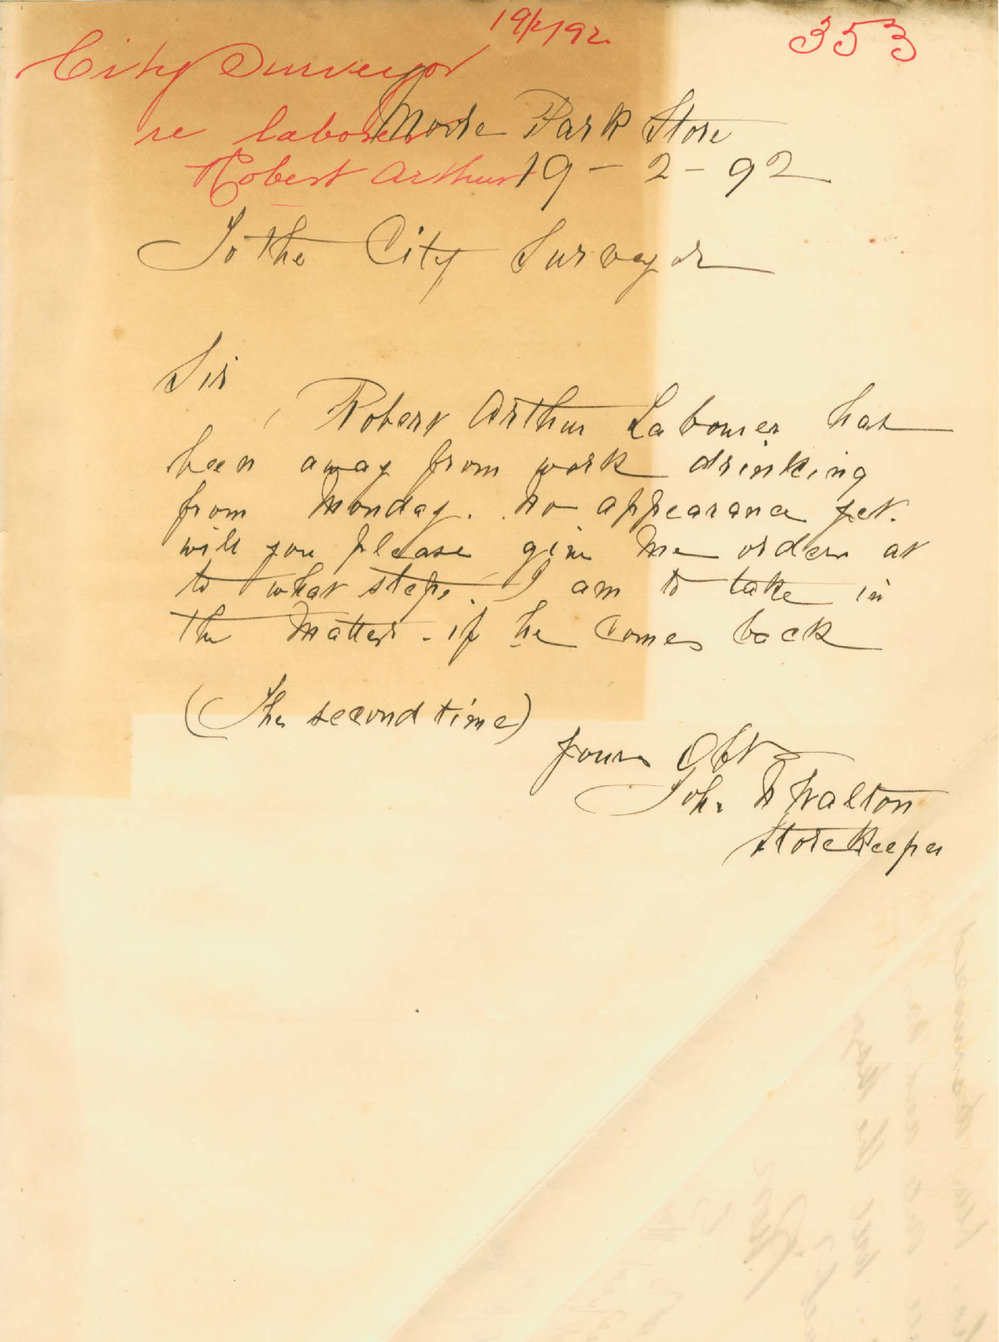 19/2/92.
353
City Surveyor
re laborer
Robert Arthur
Moore Park Store
19 - 2 - 92
To the City Surveyor
Sir
Robert Arthur Labourer has
been away from work drinking
from Monday. no appearance yet.
will you please give me orders as
to what steps I am to take in
the matter - if he comes back
(The second time)
yours Obt
John Walton
Storekeeper